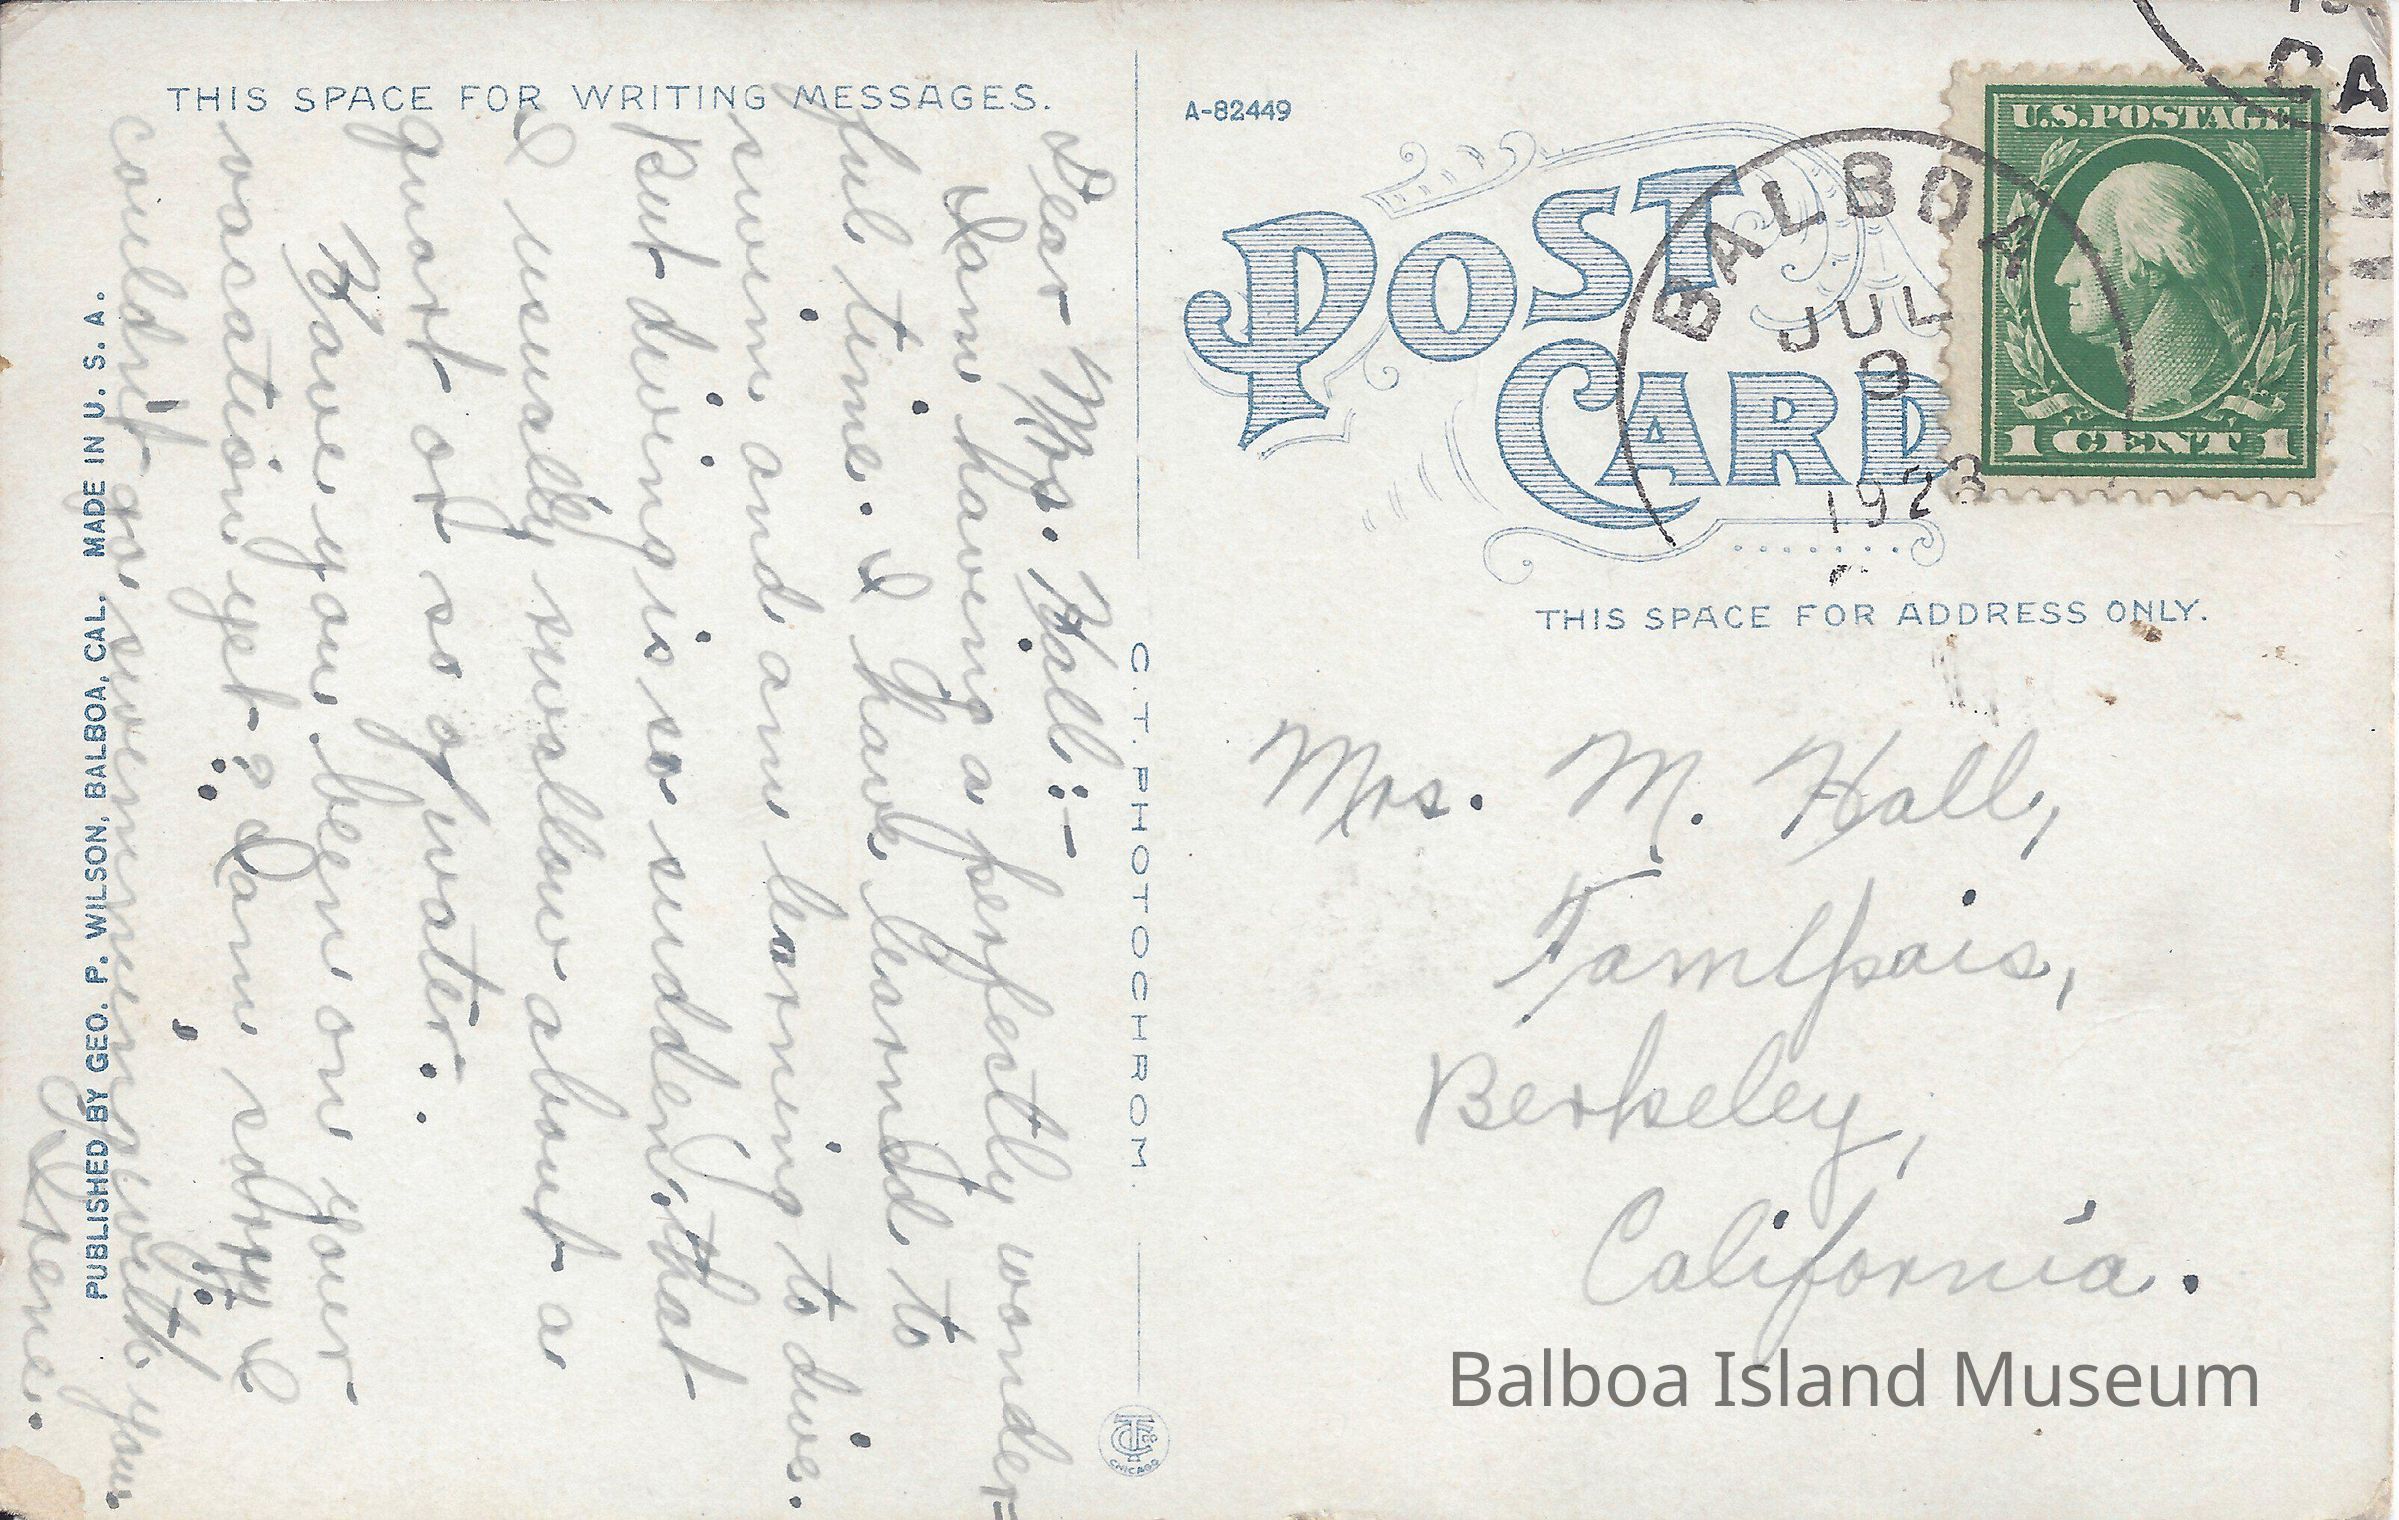 THIS SPACE FOR WRITING MESSAGES.
Dear Mrs. Hall:-
I am having a perfectly wonder-
ful time. I have learned to
swim and am learning to dive.
But diving is so sudden that
I usually swallow about a
quart or so of water.
Have you been on your
vacation yet? I am sorry I
couldn't go swimming with you.
Irene.
PUBLISHED BY GEO. P. WILSON, BALBOA, CAL. MADE IN U. S. A.
C. T. PHOTOCHROM.
C T & CO
CHICAGO
A-82449
POST
CARD
BALBOA
JUL
1923
CA
U.S. POSTAGE
1 CENT 1
THIS SPACE FOR ADDRESS ONLY.
Mrs. M. Hall,
Tamlpais,
Berkeley,
California.
Balboa Island Museum